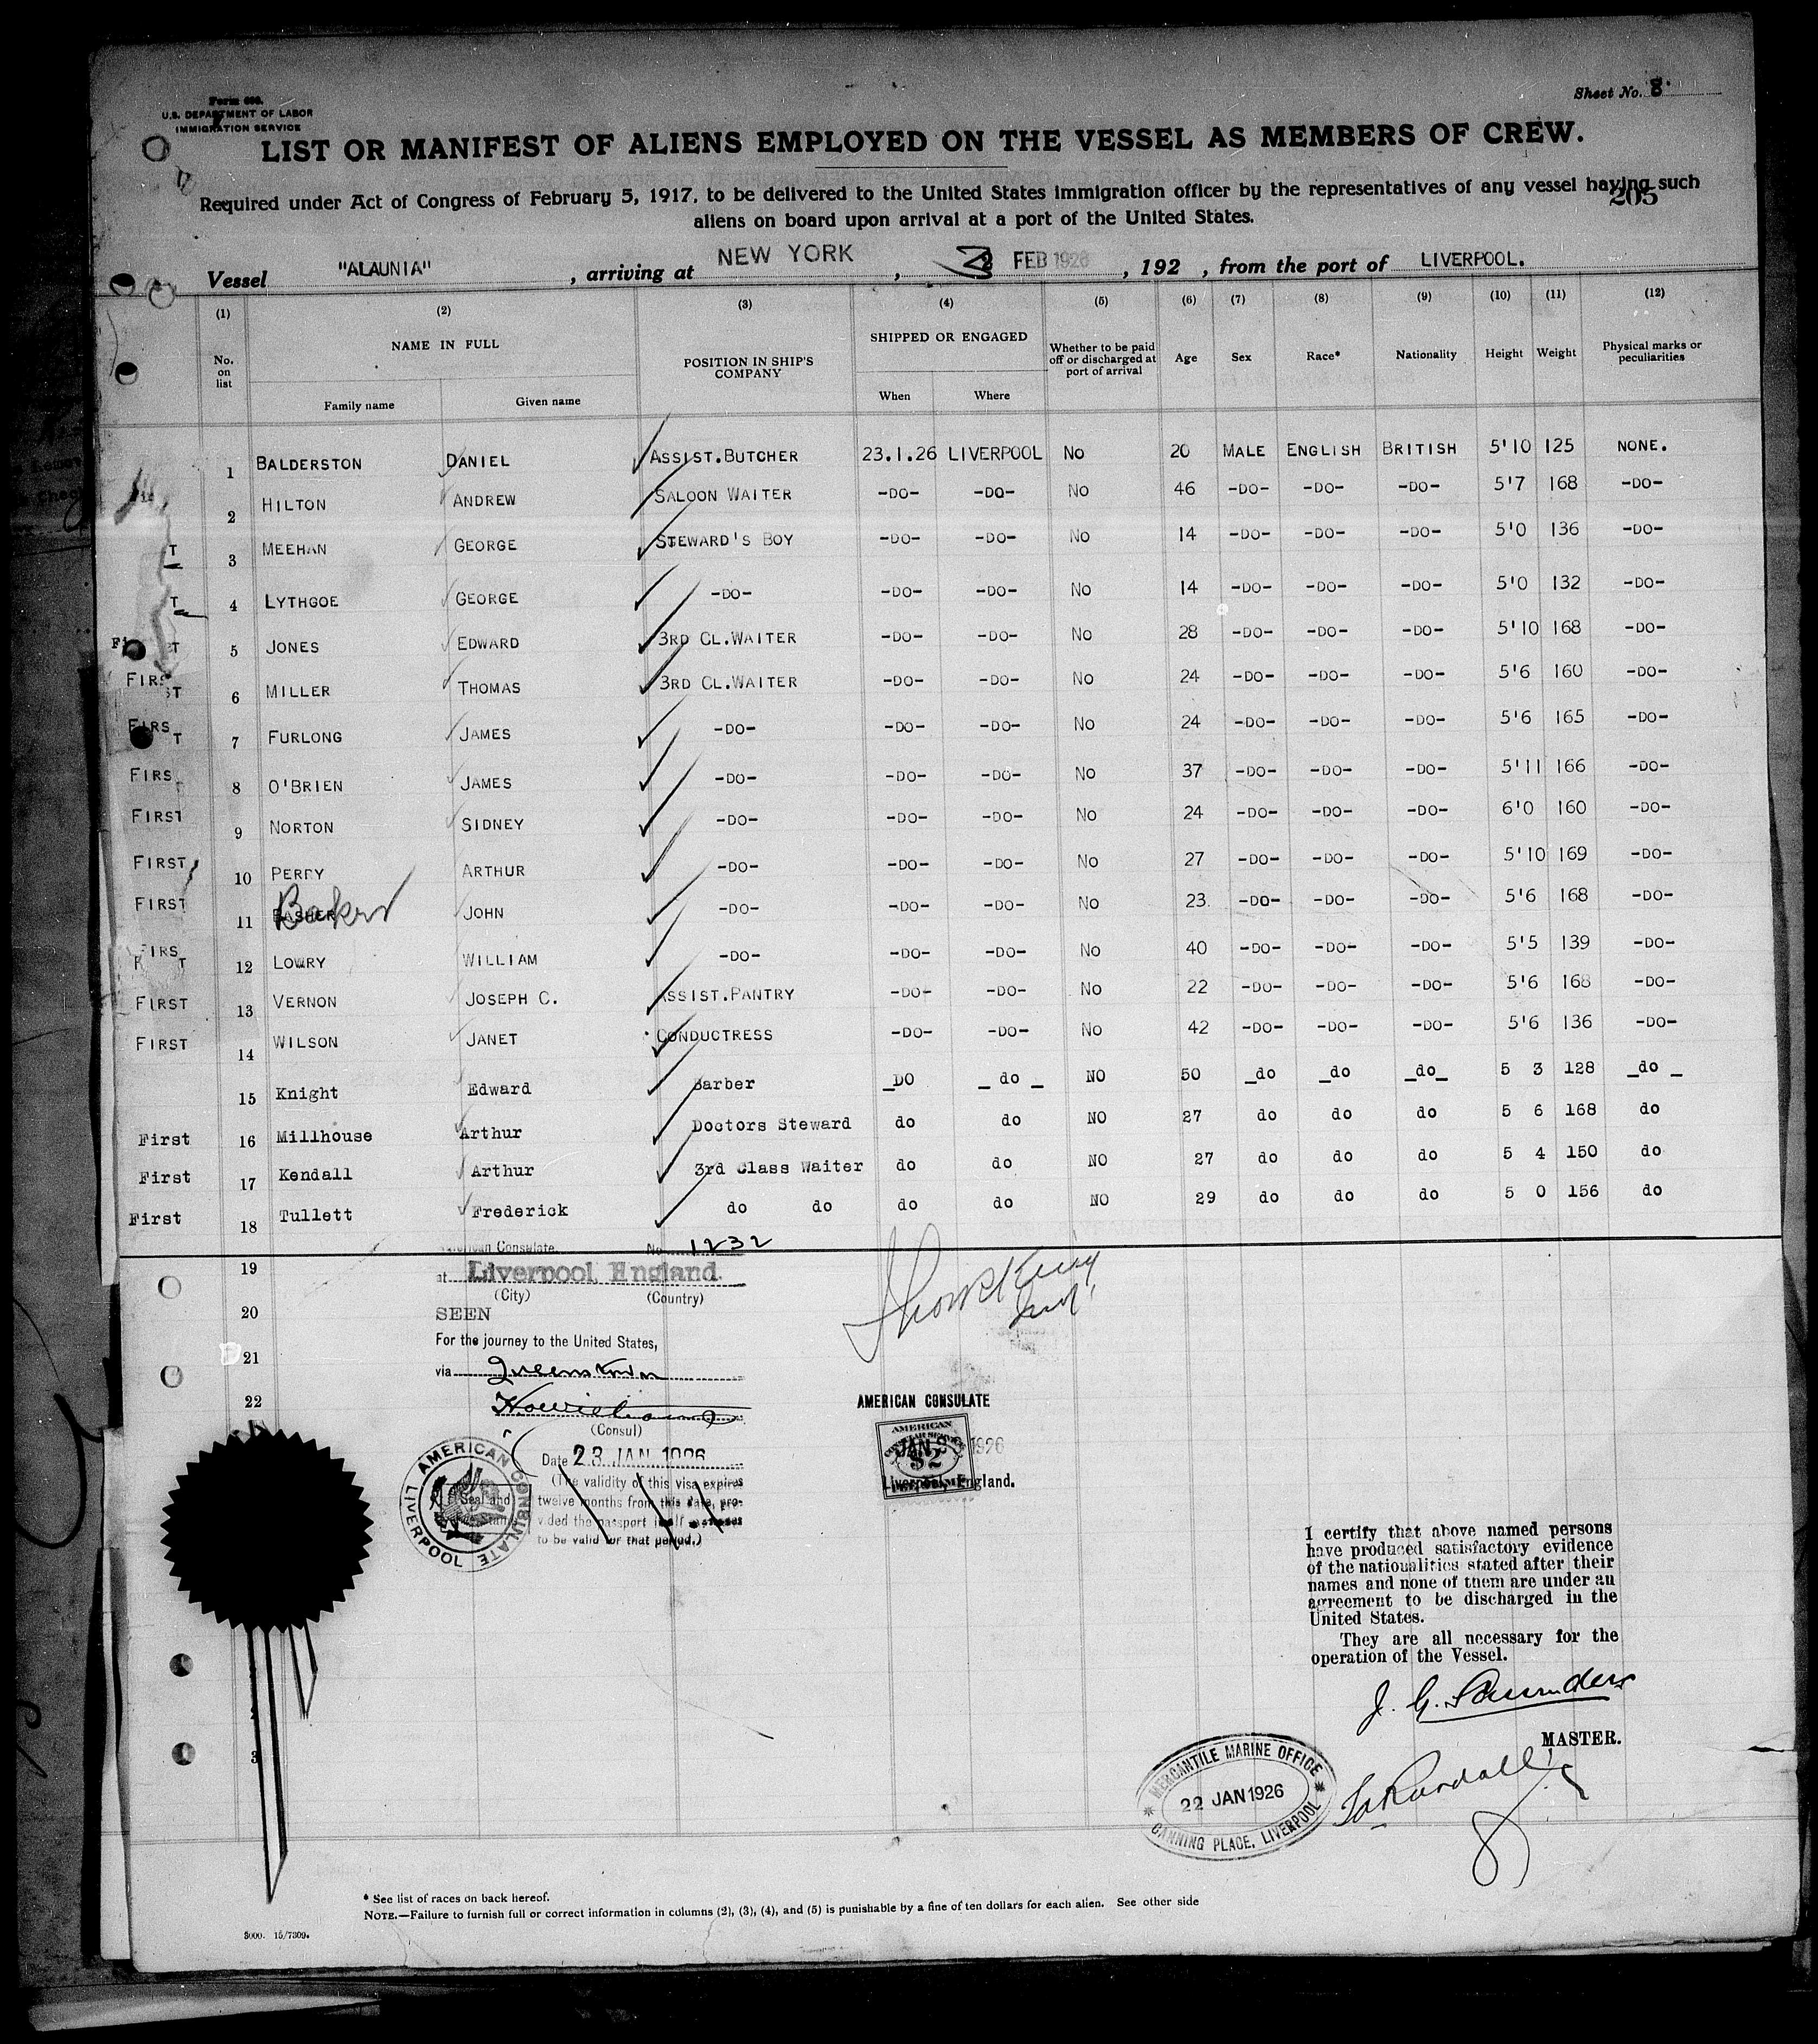 Form 680.
U.S. DEPARTMENT OF LABOR
IMMIGRATION SERVICE
Sheet No. 8
LIST OR MANIFEST OF ALIENS EMPLOYED ON THE VESSEL AS MEMBERS OF CREW.
Required under Act of Congress of February 5, 1917, to be delivered to the United States immigration officer by the representatives of any vessel having such
aliens on board upon arrival at a port of the United States.
205
Vessel "ALAUNIA", arriving at NEW YORK, 2 FEB 1926, 192 , from the port of LIVERPOOL.
(1) (2) (3) (4) (5) (6) (7) (8) (9) (10) (11) (12)
No. on list NAME IN FULL Family name Given name POSITION IN SHIP'S COMPANY SHIPPED OR ENGAGED When Where Whether to be paid off or discharged at port of arrival Age Sex Race* Nationality Height Weight Physical marks or peculiarities
1 BALDERSTON DANIEL ASSIST.BUTCHER 23.1.26 LIVERPOOL NO 20 MALE ENGLISH BRITISH 5'10 125 NONE.
2 HILTON ANDREW SALOON WAITER -DO- -DO- NO 46 -DO- -DO- -DO- 5'7 168 -DO-
T 3 MEEHAN GEORGE STEWARD'S BOY -DO- -DO- NO 14 -DO- -DO- -DO- 5'0 136 -DO-
T 4 LYTHGOE GEORGE -DO- -DO- -DO- NO 14 -DO- -DO- -DO- 5'0 132 -DO-
5 JONES EDWARD 3RD CL.WAITER -DO- -DO- NO 28 -DO- -DO- -DO- 5'10 168 -DO-
FIRST 6 MILLER THOMAS 3RD CL.WAITER -DO- -DO- NO 24 -DO- -DO- -DO- 5'6 160 -DO-
FIRST 7 FURLONG JAMES -DO- -DO- -DO- NO 24 -DO- -DO- -DO- 5'6 165 -DO-
FIRS 8 O'BRIEN JAMES -DO- -DO- -DO- NO 37 -DO- -DO- -DO- 5'11 166 -DO-
FIRST 9 NORTON SIDNEY -DO- -DO- -DO- NO 24 -DO- -DO- -DO- 6'0 160 -DO-
FIRST 10 PERRY ARTHUR -DO- -DO- -DO- NO 27 -DO- -DO- -DO- 5'10 169 -DO-
FIRST 11 BASHER Baker JOHN -DO- -DO- -DO- NO 23 -DO- -DO- -DO- 5'6 168 -DO-
FIRST 12 LOWRY WILLIAM -DO- -DO- -DO- NO 40 -DO- -DO- -DO- 5'5 139 -DO-
FIRST 13 VERNON JOSEPH C. ASSIST.PANTRY -DO- -DO- NO 22 -DO- -DO- -DO- 5'6 168 -DO-
FIRST 14 WILSON JANET CONDUCTRESS -DO- -DO- NO 42 -DO- -DO- -DO- 5'6 136 -DO-
15 Knight Edward Barber _DO _ do _ NO 50 _do _do _do_ 5 3 128 _do _
First 16 Millhouse Arthur Doctors Steward do do NO 27 do do do 5 6 168 do
First 17 Kendall Arthur 3rd Class Waiter do do NO 27 do do do 5 4 150 do
First 18 Tullett Frederick do do do do NO 29 do do do 5 0 156 do
American Consulate. No. 1232
19
at Liverpool, England
(City) (Country)
20 SEEN
For the journey to the United States,
21
via Queenstown
22
(Consul)
Date 23 JAN 1926
(The validity of this visa expires
twelve months from this date, pro-
vided the passport itself
to be valid for that period.)
AMERICAN CONSULATE LIVERPOOL
Seal and
AMERICAN CONSULATE
AMERICAN
CONSULAR SERVICE
$2
JAN 23 1926
Liverpool, England.
I certify that above named persons
have produced satisfactory evidence
of the nationalities stated after their
names and none of them are under an
agreement to be discharged in the
United States.
They are all necessary for the
operation of the Vessel.
J. G. Saunders
MASTER.
MERCANTILE MARINE OFFICE
22 JAN 1926
CANNING PLACE, LIVERPOOL
8
* See list of races on back hereof.
NOTE.—Failure to furnish full or correct information in columns (2), (3), (4), and (5) is punishable by a fine of ten dollars for each alien. See other side
5000. 15/7309.